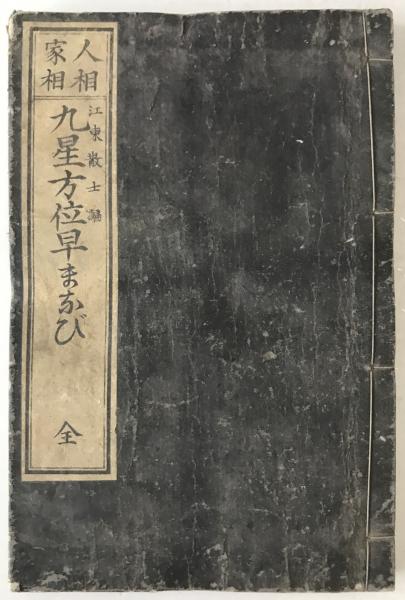 人相
家相
江東散士編
九星方位早まなび
全